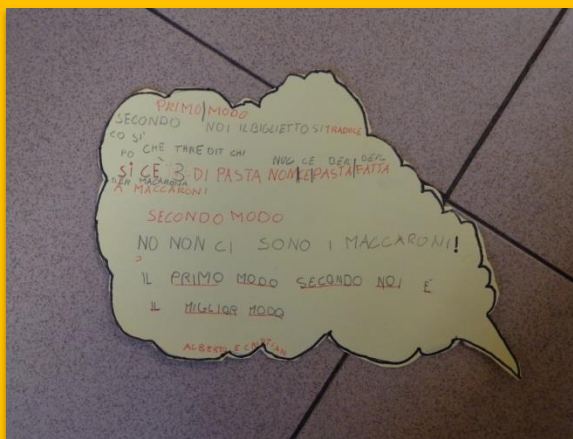 PRIMO MODO
SECONDO NOI IL BIGLIETTO SI TRADUCE
COSI'
PO CHE THRE DIT CHI NUG CE DER DEFL
SI C'È 3 DI PASTA NON C'È PASTA FATTA
DER MACARONI
A MACCARONI
SECONDO MODO
NO NON CI SONO I MACCARONI!
IL PRIMO MODO SECONDO NOI E
IL MIGLIOR MODO
ALBERTO E